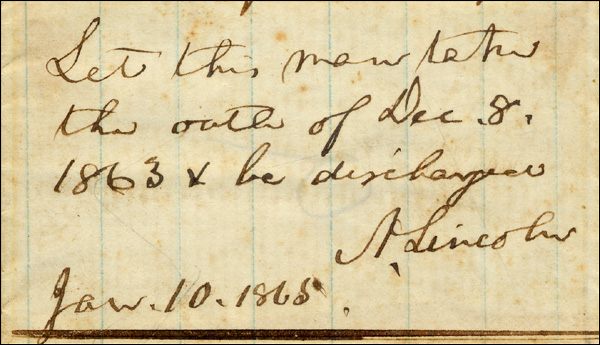 Let this man take
the oath of Dec. 8.
1863 & be discharged
A. Lincoln
Jan. 10. 1865.